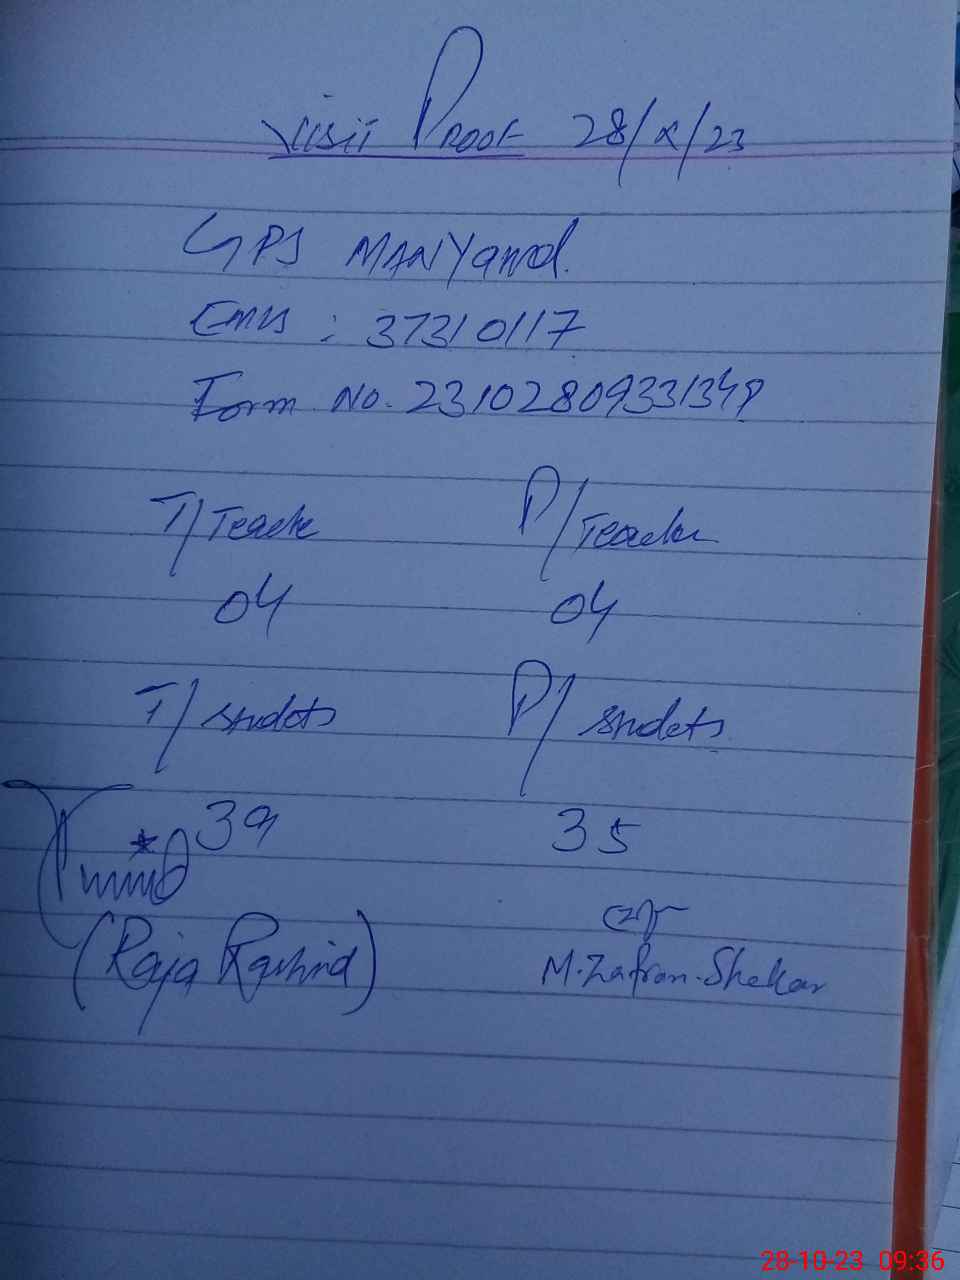 Visit Proof 28/X/23
GPS MANYand.
EMIS : 37310117
Form No. 23102809331348
T/Teache P/Teacher
04 04
T/Studets P/Studets
39 35
(Raja Rashid) M.Zafran.Shekar
28-10-23 09:36